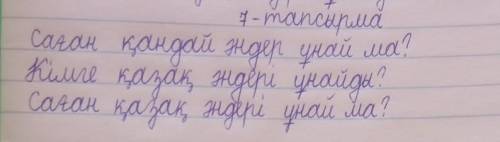 7-тапсырма
Саған қандай әндер ұнай ма?
Кімге қазақ әндері ұнайды?
Саған қазақ әндері ұнай ма?